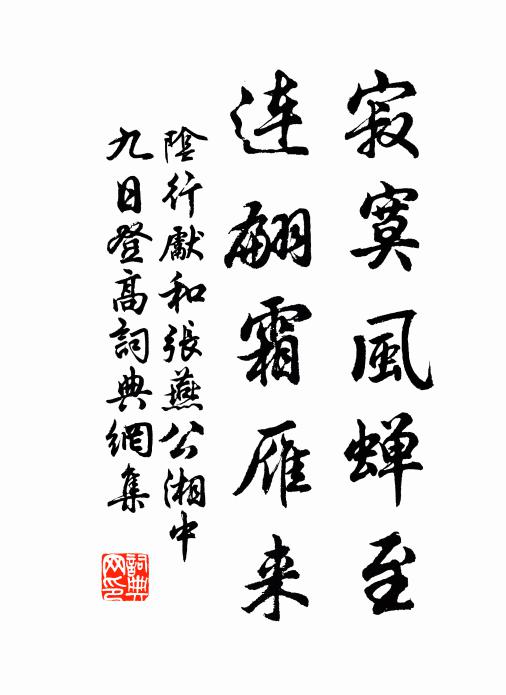 寂寞風蝉至
连翩霜雁来
陰行獻和張燕公湘中
九日登高詞典網集
詞典
网印